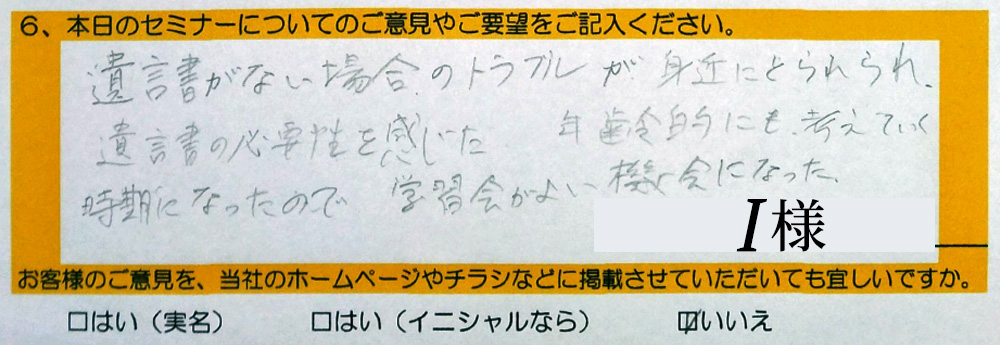 6、本日のセミナーについてのご意見やご要望をご記入ください。
遺言書がない場合のトラブルが身近にとられられ、
遺言書の必要性を感じた 年齢的にも、考えていく
時期になったので 学習会がよい機会になった、
I様
お客様のご意見を、当社のホームページやチラシなどに掲載させていただいても宜しいですか。
□はい（実名） □はい（イニシャルなら） ☑いいえ